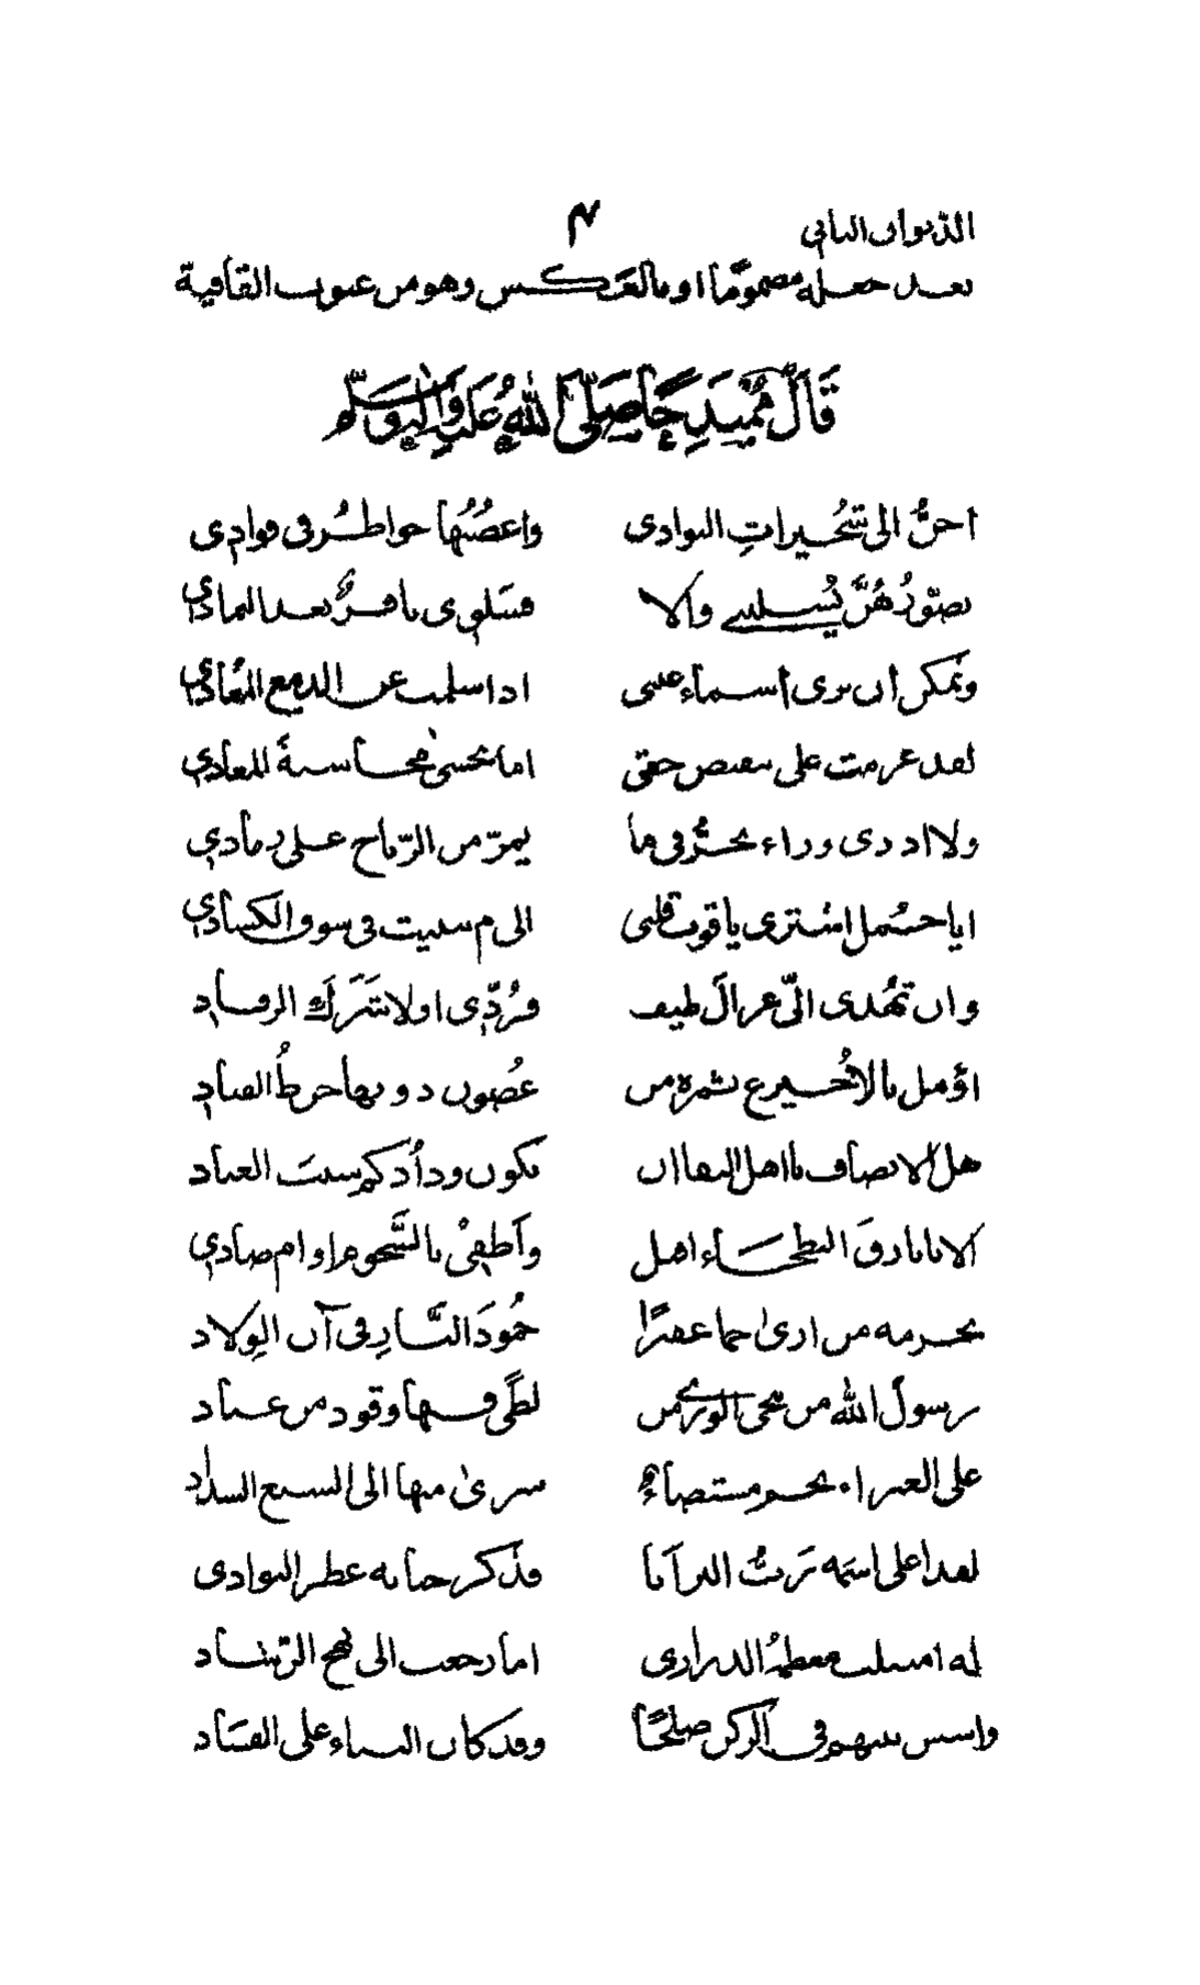 الديوان الثاني ٣
بعد جعله مضمومًا او بالعكس وهو من عيوب القافية
قَالَ يمدح صلى الله عليه واله وسلم
احنُّ الى شُجيراتِ البوادى واغصُنُها خواطرُ فى فوادى
تصوّرُهُنَّ يُسلينى والا فسَلوى يا فرُ بعد البعادى
ويمكن ان يرى أسماء عينى اذا سلمت عن الدمع المُعادى
لقد عزمت على حتفى اما تخشى محاسبةً المعادى
ولا ادرى وراء تحرُّقى ما يمرّ من الرّياح على رمادى
ايا اشترى ياقوت قلبى الى م بيت فى سوق الكسادى
وان تُهدى الىّ غزالَ طيف فرُدّى اولا شَرَكَ الرقاد
اؤمل بالاُخيرع ثمرة من غُصون دونها خرطُ القتاد
هل الانصاف يا اهل النقا ان يكون ودادكم العباد
الا يا بارقَ البطحاء اهل وأطفىْ بالسَّحوم اوام صادى
بحرمة من ارى خُمودَ النَّارِ فى آن الوِلاد
رسولُ الله من نجى الورى من لظًى فيها وقود من عباد
على الغبراء نجم مستضاء سرى منها الى السبع الشداد
لقد اعلى اسمه ربُّ البرايا فذكر جنابه عطر البوادى
له امتثلت الدرارى اما رجعت الى نهج الرّشاد
واسس بينهم فى الركن صلحًا وقد كان البناء على الفسَاد